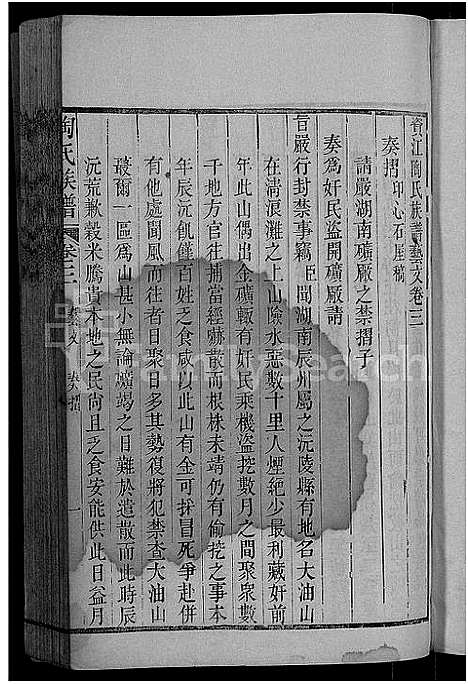 資江陶氏族譜藝文卷三
奏摺印心石屋稿
請嚴湖南礦厰之禁摺子
奏為奸民盜開礦厰請
旨嚴行封禁事竊臣聞湖南辰州屬之沅陵縣有地名大油山
在清浪灘之上山險水惡數十里人煙絶少最利藏奸前
年此山偶出金礦輒有奸民乘機盜挖數月之間聚衆數
千地方官往捕當經嚇散而根株未靖仍有偷挖之事本
年辰沅飢饉百姓乏食咸以此山有金可採冒死爭赴併
有他處聞風而往者日聚日多其勢復將犯禁查大油山
蕞爾一區為山甚小無論礦竭之日難於遣散而此時辰
沅荒歉穀米騰貴本地之民尚且乏食安能供此日益月
陶氏族譜
卷三
藝文 奏摺
一
FamilySearch